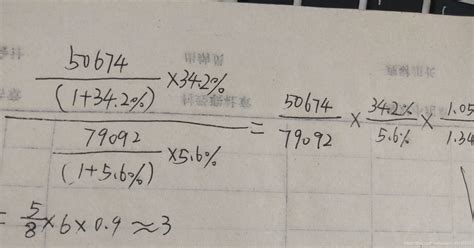 50674
(1+34.2%) ×34.2%
79092
(1+5.6%) ×5.6%
= 50674/79092 × 34.2%/5.6% × 1.05/1.34
= 5/8 ×6×0.9 ≈3